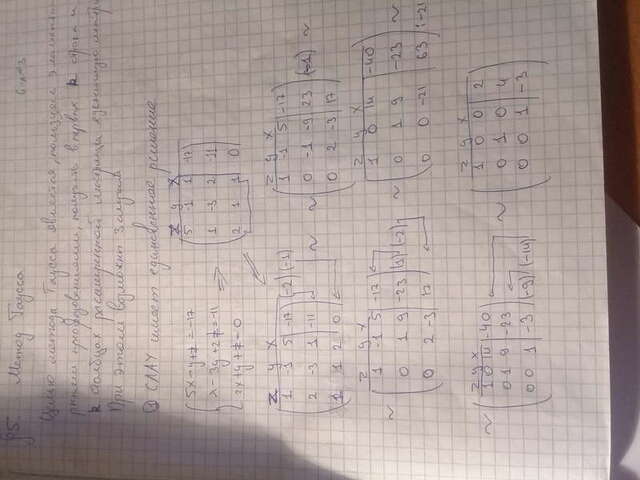 §5. Метод Гаусса
Целью метода Гаусса является, пользуясь элемент
рными преобразованиями, получить в первых k строка и
k столбцах расширенной матрицы единичную матри
При этом возможны 3 случая
① СЛАУ имеет единственное решение
5x-y+z=-17
x-3y+2z=-11
2x+y+z=0
=>
z y x
5 -1 1 -17
1 -3 2 -11
2 1 1 0
z y x
1 -1 5 -17 (-2) (-1)
2 -3 1 -11
1 1 2 0
~
~
z y x
1 -1 5 -17
0 -1 -9 23 (-1) ~
0 2 -3 17
~
z y x
1 -1 5 -17
0 1 9 -23 (1) (-2)
0 2 -3 17
~
z y x
1 0 14 -40
0 1 9 -23 ~
0 0 -21 63 :-21
~
z y x
1 0 14 -40
0 1 9 -23
0 0 1 -3 (-9) (-14)
~
z y x
1 0 0 2
0 1 0 4
0 0 1 -3